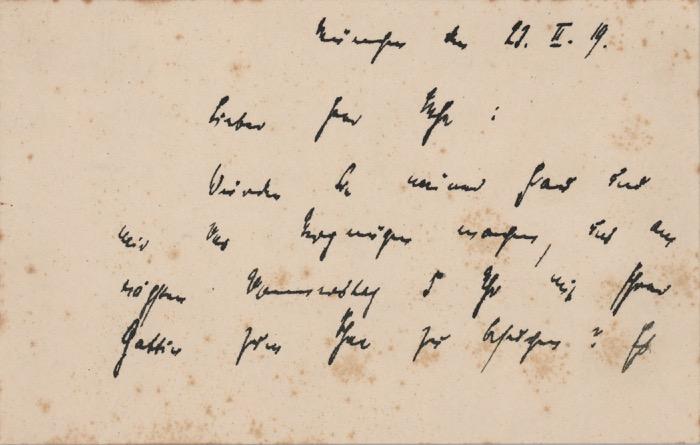 München den 23. II. 19.
Lieber Herr :
Würden Sie meiner Frau und
mir das Vergnügen machen, uns am
nächsten Donnerstag 5 Uhr mit Ihrer
Gattin zum Thee zu besuchen? Es